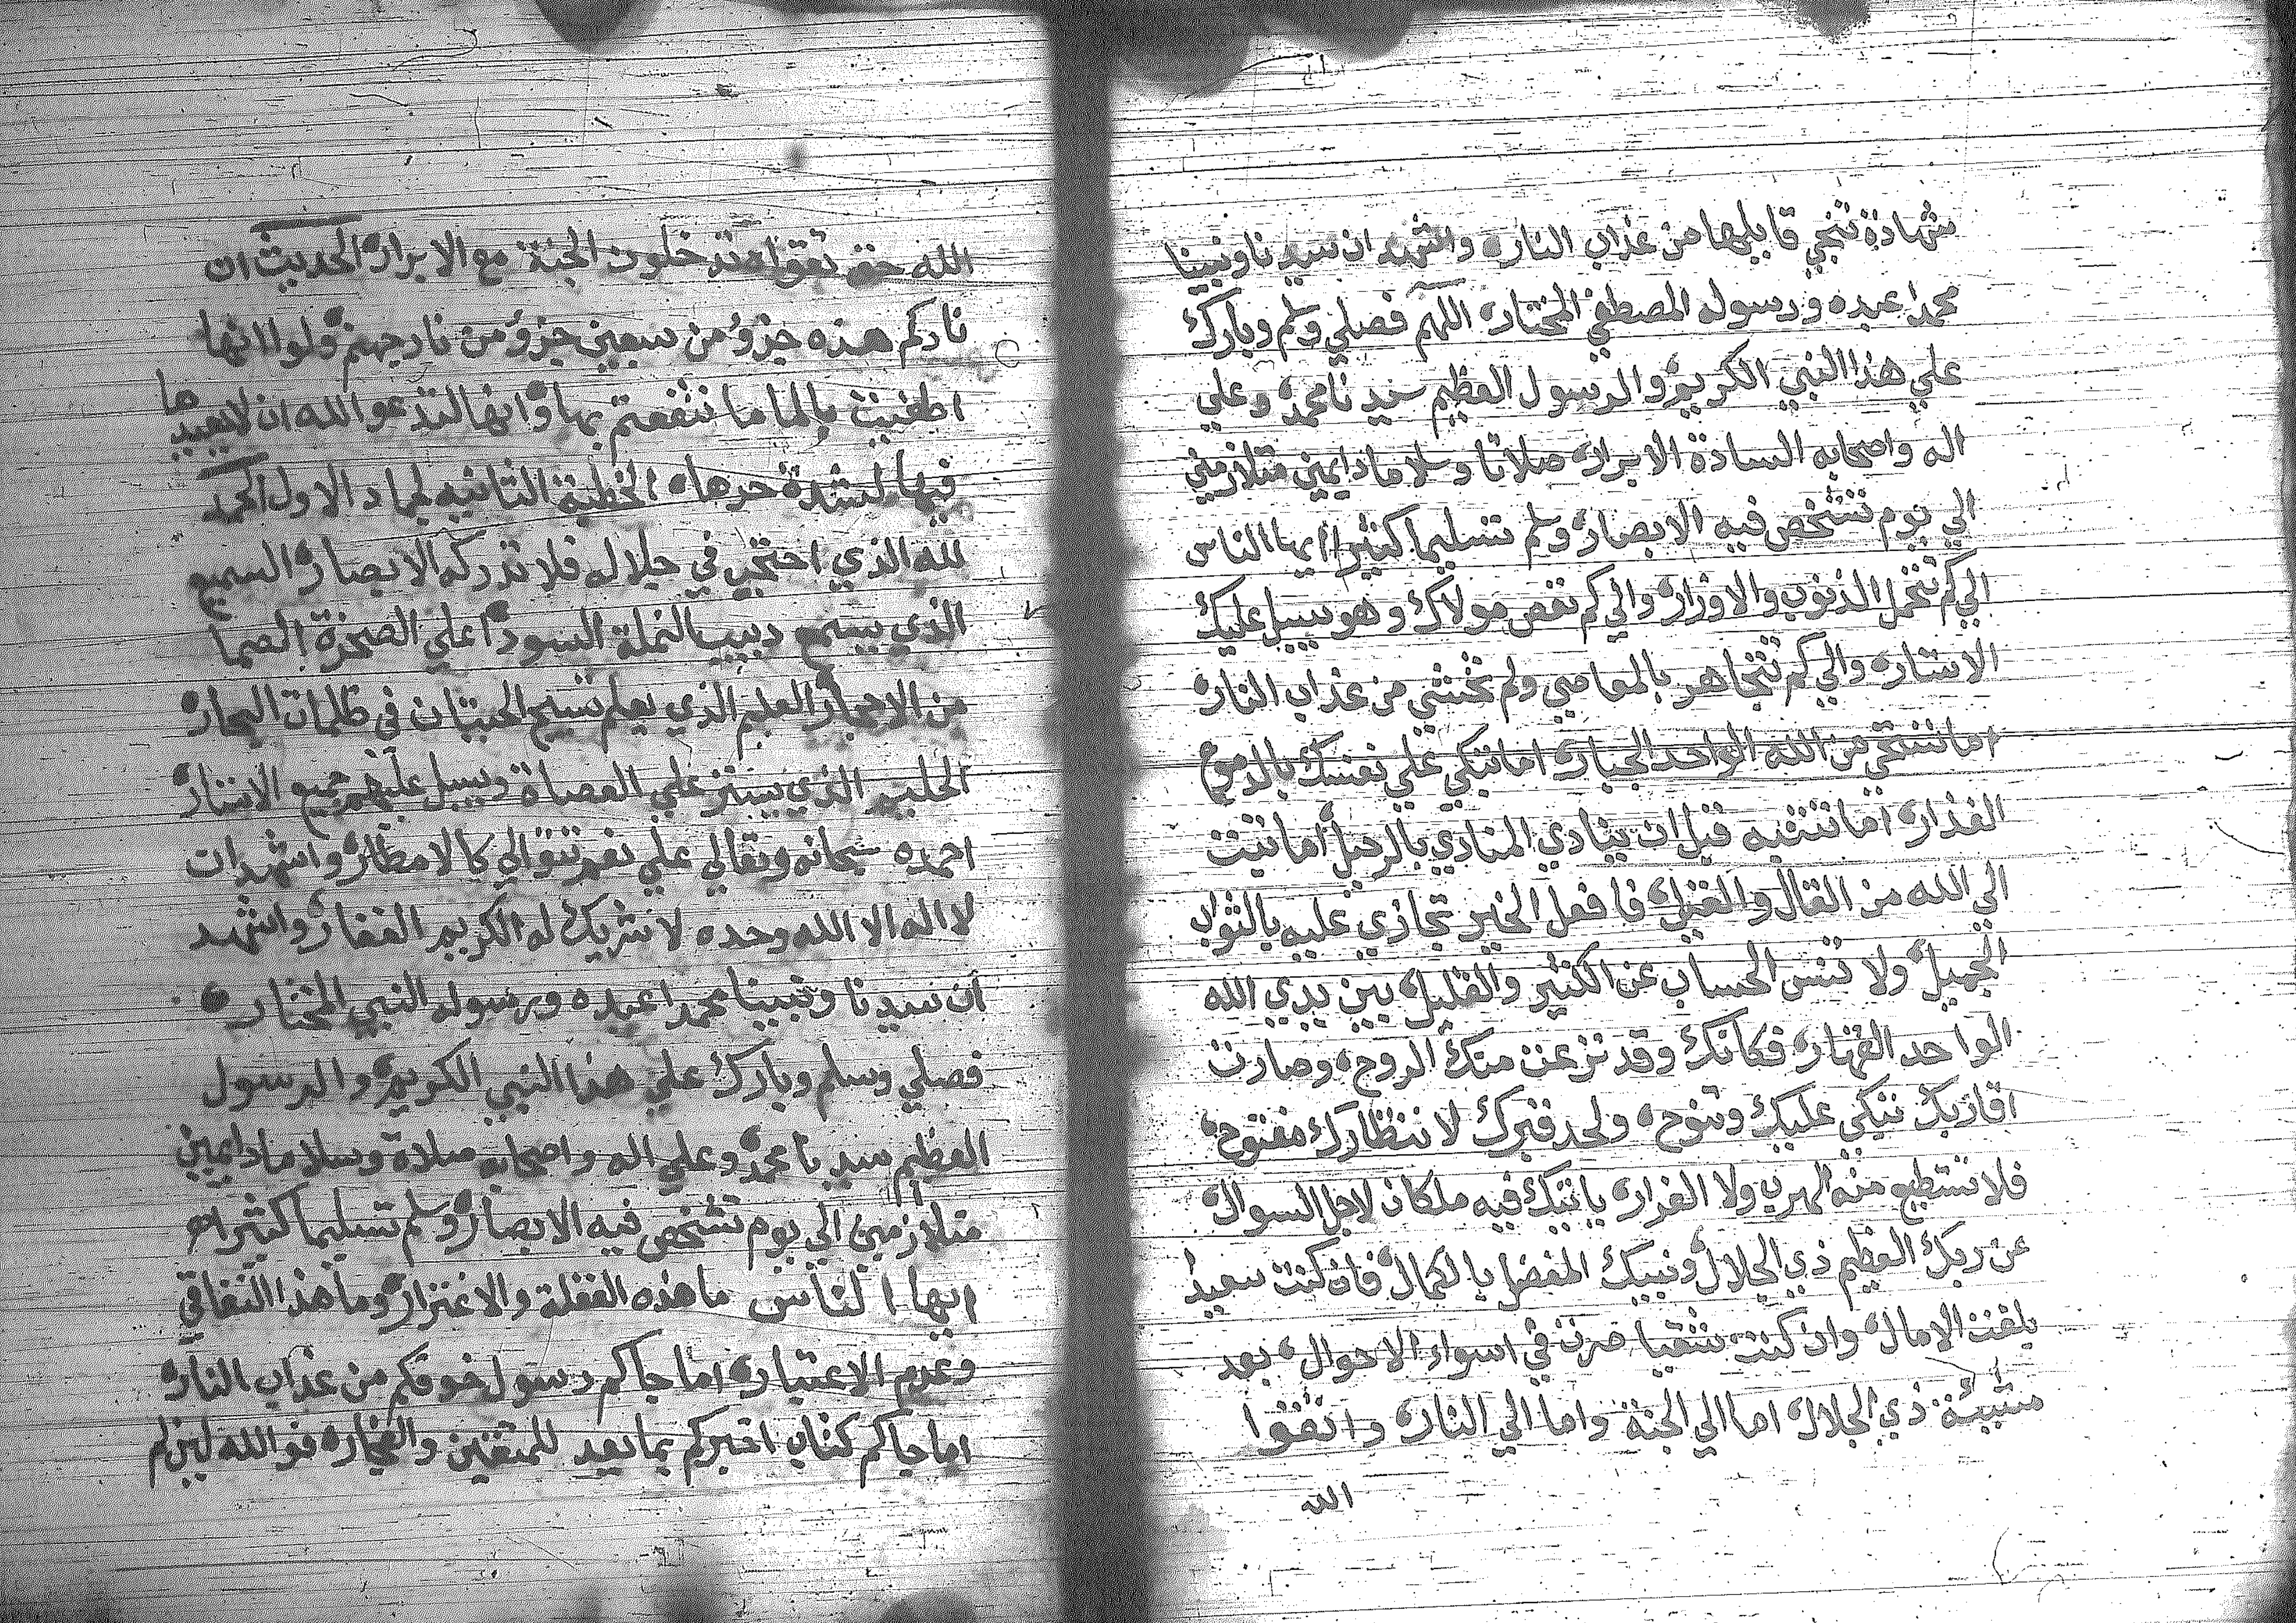 شهادة تنجي قايلها من عذاب النار، واشهد ان سيدنا ونبينا
محمدا عبده ورسوله المصطفي المختار، اللهم فصلي وسلم وبارك
علي هذا النبي الكريم، والرسول العظيم سيدنا محمد، وعلي
اله واصحابه السادة الابرار، صلاتا وسلاما دايمين متلازمين
الي يوم تشخص فيه الابصار، وسلم تسليما كثيرا ايها الناس
الي كم تتحمل الذنوب والاوزار، والي كم تعص مولاك وهو يسبل عليك
الاستار، والي كم تتجاهر بالمعاصي ولم تخشي من عذاب النار،
اما تستحي من الله الواحد الجبار، اما تبكي علي نفسك بالدموع
الغزار، اما تنتبه قبل ان ينادي المنادي بالرحيل، اما تبت
الي الله من القال والقيل، فافعل الخير تجازي عليه بالثواب
الجميل، ولا تنس الحساب عن الكثير والقليل، بين يدي الله
الواحد القهار، فكانك وقد نزعت منك الروح، وصارت
اقاربك تبكي عليك وتنوح، ولحد قبرك لانتظارك مفتوح،
فلا تستطيع منه الهرب ولا الفرار، ياتيك فيه ملكان لاجل السوال،
عن ربك العظيم ذي الجلال، ونبيك المفضل بالكمال، فان كنت سعيدا
بلغت الامال، وان كنت شقيا صرت في اسواء الاحوال، بعد
مشيئة ذي الجلال، اما الي الجنة واما الي النار، واتقوا
الله
الله حق تقواه تدخلون الجنة مع الابرار، الحديث ان
ناركم هذه جزؤ من سبعين جزؤ من نار جهنم، ولولا انها
اطفيت بالما ما نتفعتم بها، وانها لتدعو الله ان لا يعيدها
فيها لشدة حرها، الخطبة الثانيه لجماد الاول الحمد
لله الذي احتجب في جلاله فلا تدركه الابصار، السميع
الذي يسمع دبيب النملة السودا علي الصخرة الصما
من الاحجار، العليم الذي يعلم تسبيح الحيتان في ظلمات البحار،
الحليم الذي يستر علي العصاة ويسبل عليهم جميع الاستار،
احمده سبحانه وتعالي علي نعم تتوالي كالامطار، واشهد ان
لا اله الا الله وحده لا شريك له الكريم الغفار، واشهد
ان سيدنا ونبينا محمدا عبده ورسوله النبي المختار،
فصلي وسلم وبارك علي هذا النبي الكريم، والرسول
العظيم سيدنا محمد، وعلي اله واصحابه صلاة وسلاما دايمين
متلازمين الي يوم تشخص فيه الابصار، وسلم تسليما كثيرا
ايها الناس ما هذه الغفلة والاغترار، وما هذا النفاق
وعدم الاعتبار، اما جاكم رسول خوفكم من عذاب النار،
اما جاكم كتاب اخبركم بما يعد للمتقين والفجار، فوالله لين لم